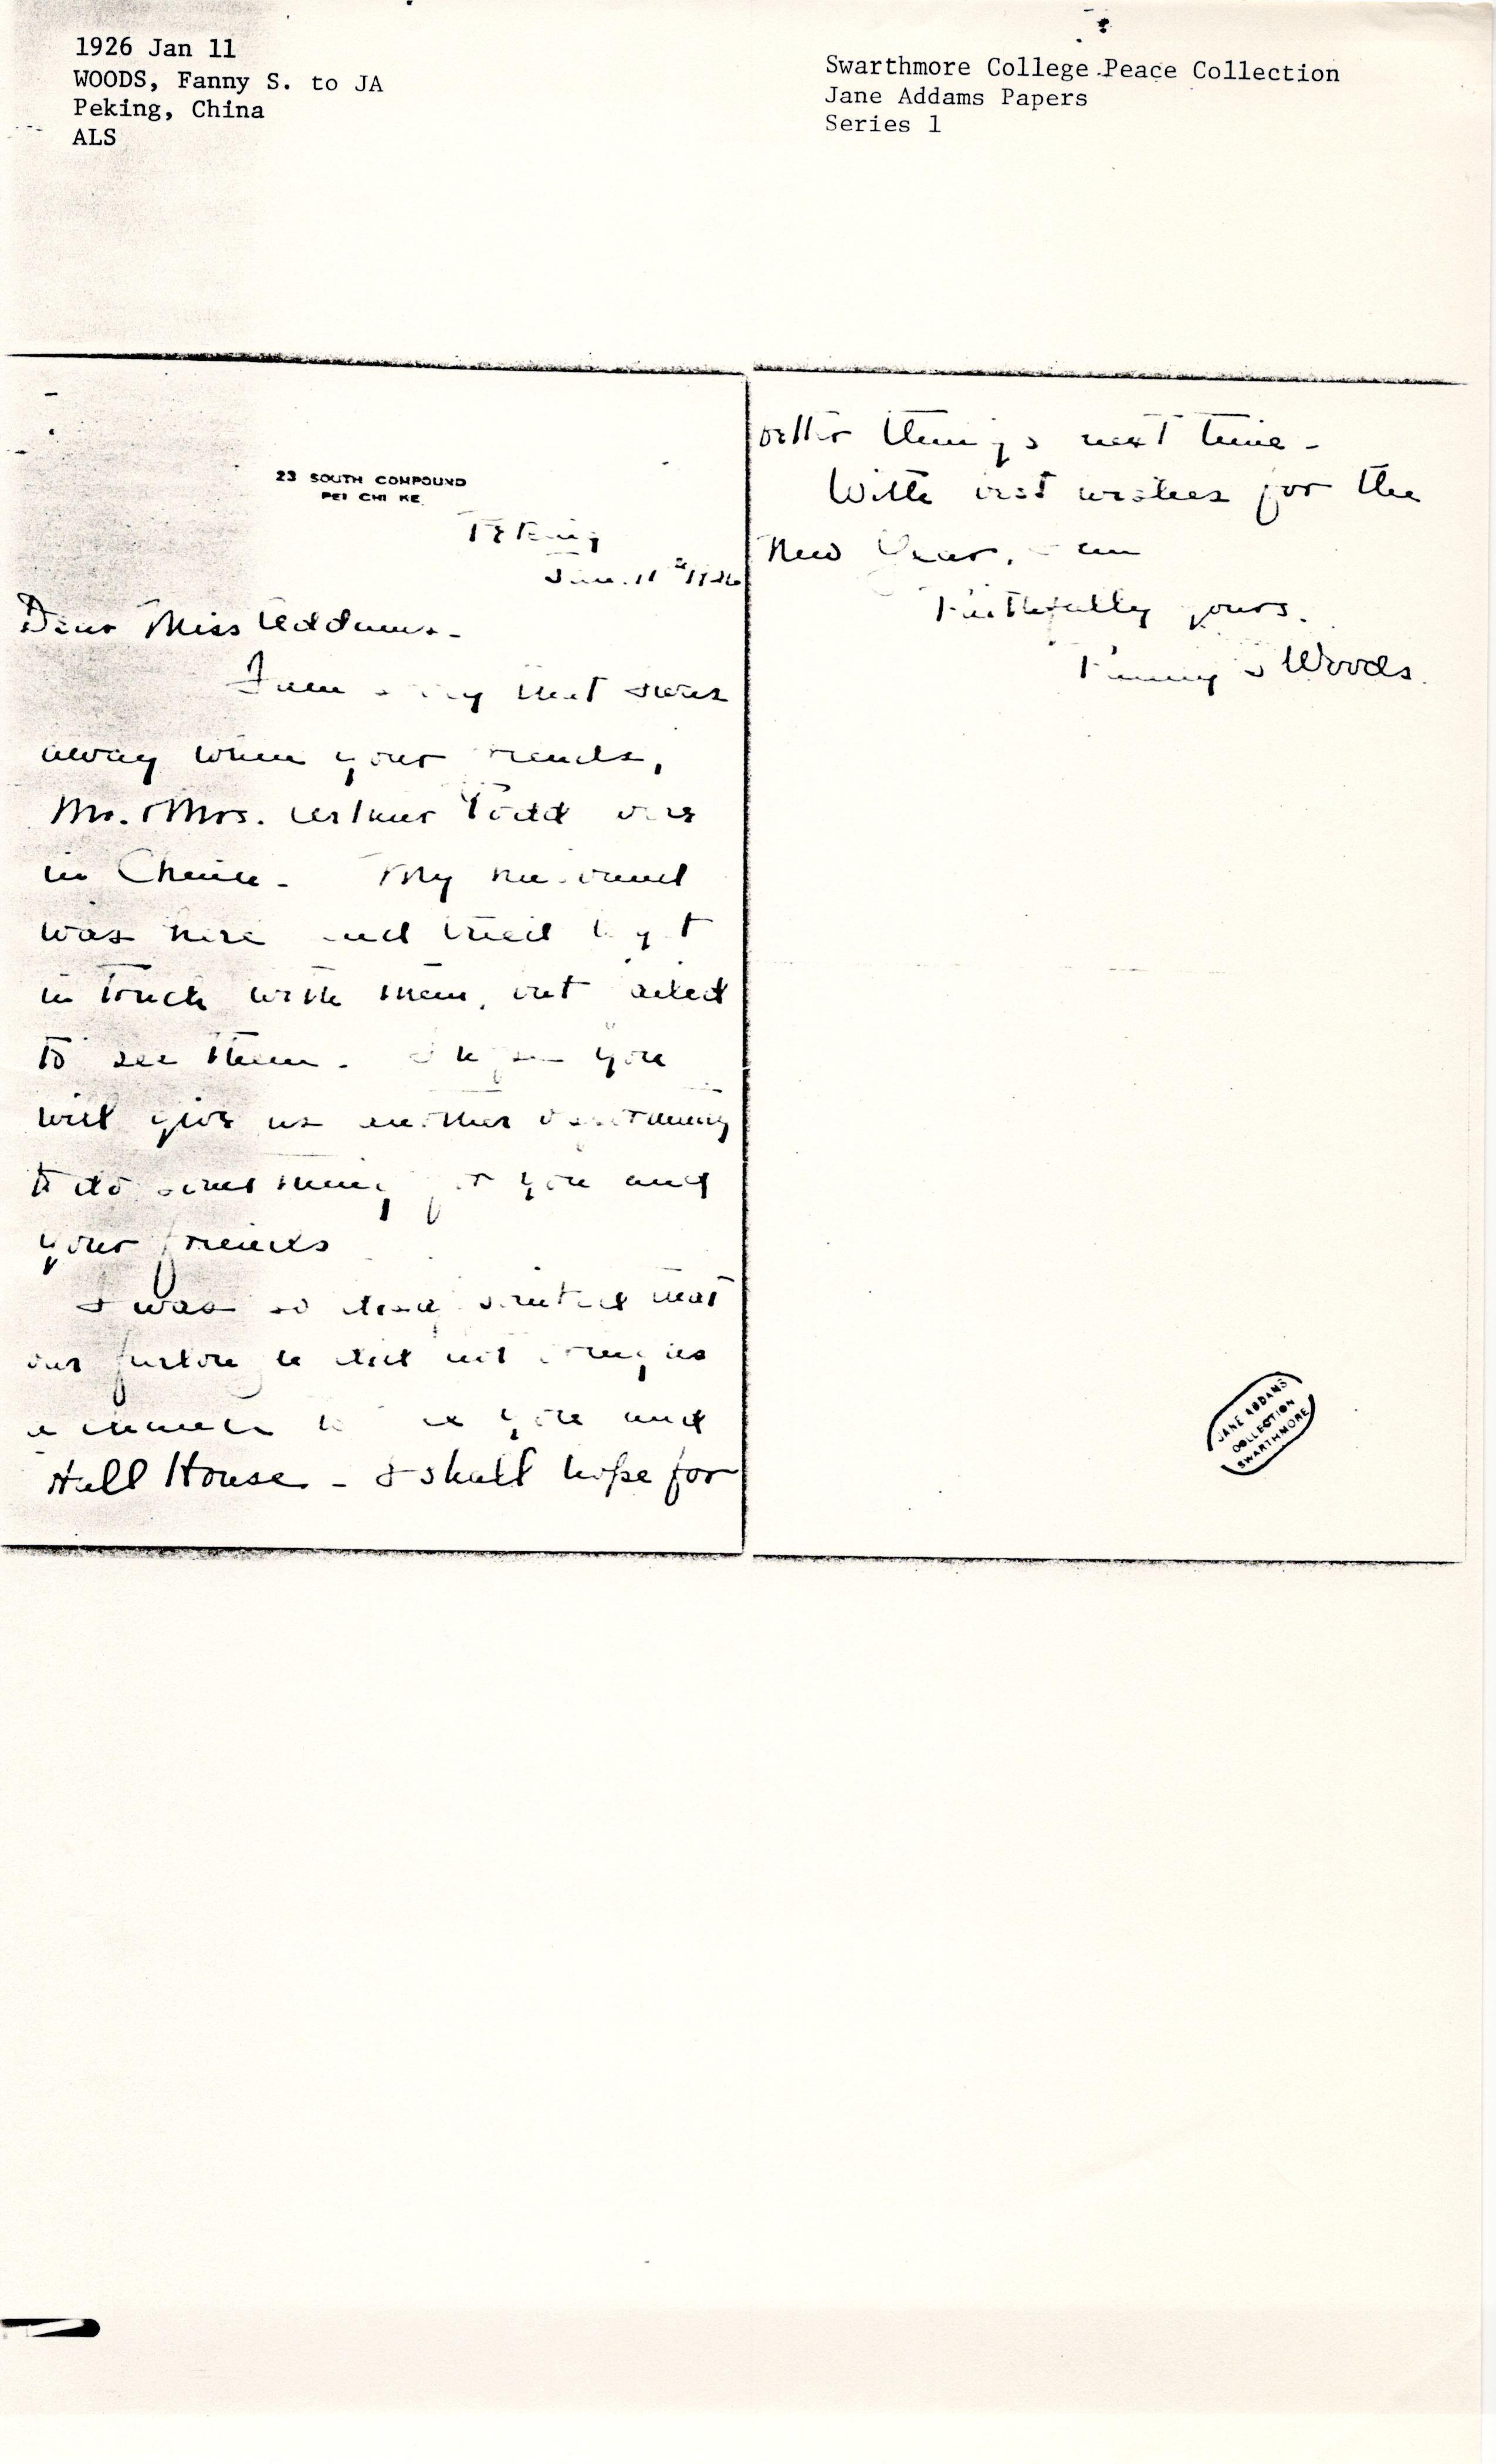 1926 Jan 11
WOODS, Fanny S. to JA
Peking, China
ALS
Swarthmore College Peace Collection
Jane Addams Papers
Series 1
23 SOUTH COMPOUND
PEI CHI KE
Peking
Jan. 11 1926
Dear Miss Addams -
I am sorry that I was
away when your friends,
Mr. & Mrs. Arthur Todd were
in China - My husband
was here and tried to get
in touch with them, but failed
to see them. I hope you
will give us another opportunity
to do something for you and
your friends
I was so disappointed that
our furlough did not bring us
a chance to see you and
Hull House - I shall hope for
better things next time -
With best wishes for the
New Year, I am
Faithfully yours.
Fanny S Woods
JANE ADDAMS
COLLECTION
SWARTHMORE